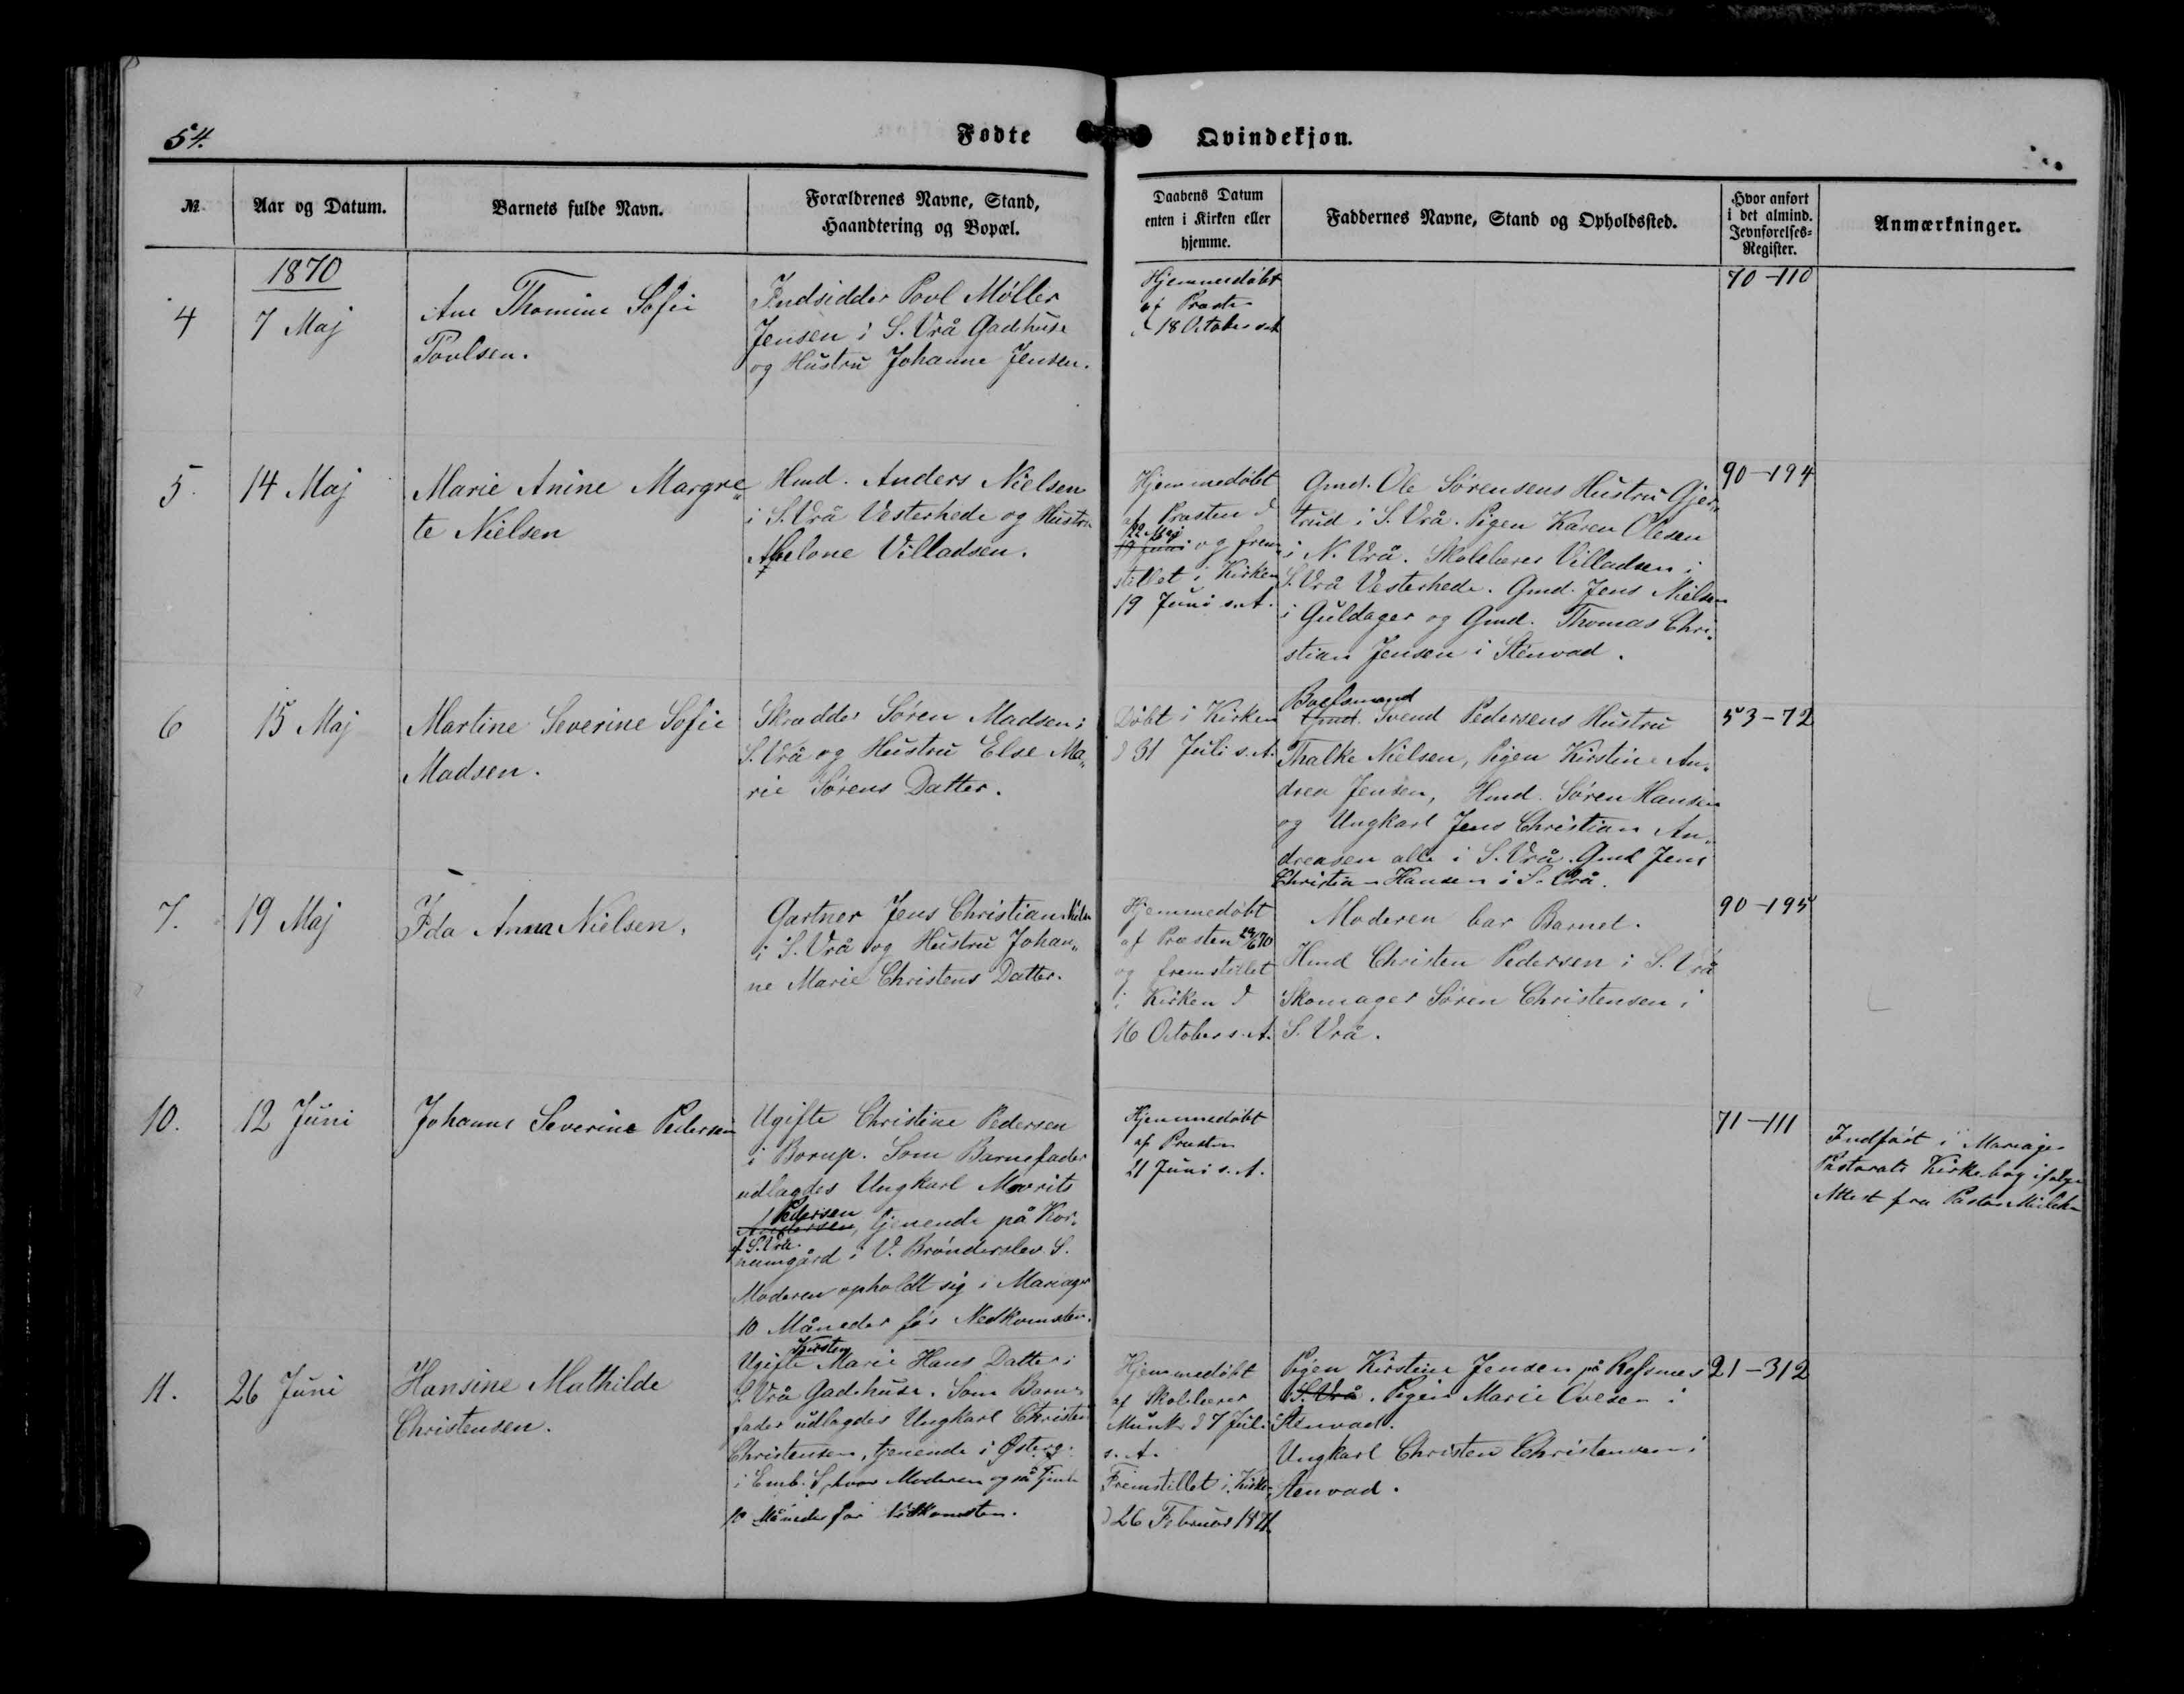 54.
Fødte
Qvindekjøn.
№
Aar og Datum.
Barnets fulde Navn.
Forældrenes Navne, Stand,
Haandtering og Bopæl.
Daabens Datum
enten i Kirken eller
hjemme.
Faddernes Navne, Stand og Opholdssted.
Hvor anført
i det almind.
Jevnførelses-
Register.
Anmærkninger.
1870
4
7 Maj
Ane Thomine Sofie
Poulsen.
Indsidder Povl Møller
Jensen i S. Vrå Gadehuse
og Hustru Johanne Jensen.
Hjemmedøbt
af Præsten
d 18 October s.A.
70-110
5.
14 Maj
Marie Anine Margre„
te Nielsen
Hmd. Anders Nielsen
i S. Vrå Vesterhede og Hustru
Abelone Villadsen.
Hjemmedøbt
af Præsten d
22 Maj
19 Juni og frem„
stillet i Kirken
19 Juni s.A.
Gmd. Ole Sørensens Hustru Gjer„
trud i S. Vrå. Pigen Karen Olesen
i N. Vrå. Skolelærer Villadsen i
S. Vrå Vesterhede. Gmd. Jens Nielsen
i Guldager og Gmd. Thomas Chri„
stian Jensen i Stenvad.
90-194
6
15 Maj
Martine Severine Sofie
Madsen.
Skrædder Søren Madsen i
S. Vrå og Hustru Else Ma„
rie Sørens Datter.
Døbt i Kirken
d 31 Juli s.A.
Boelsmand
Gmd. Svend Pedersens Hustru
Thalke Nielsen, Pigen Kirstine An„
drea Jensen, Hmd. Søren Hansen
og Ungkarl Jens Christian An„
dreasen alle i S. Vrå. Gmd Jens
Christian Hansen i S. Vrå.
53-72
7.
19 Maj
Ida Anna Nielsen.
Gartner Jens Christian Nielsen
i S. Vrå og Hustru Johan„
ne Marie Christens Datter.
Hjemmedøbt
af Præsten 29/6 70
og fremstillet
i Kirken d
16 October s.A.
Moderen bar Barnet.
Hmd Christen Pedersen i S. Vrå
Skomager Søren Christensen i
S. Vrå.
90-195
10.
12 Juni
Johanne Severine Pedersen
Ugifte Christine Pedersen
i Borup. Som Barnefader
udlagdes Ungkarl Morits
Pedersen
Andersen, tjenende på Kor„
f. S. Vrå.
numgård i V. Brønderslev S.
Moderen opholdt sig i Mariager
10 Måneder før Nedkomsten.
Hjemmedøbt
af Præsten
21 Juni s.A.
71-111
Indført i Mariager
Pastorats Kirkebog ifølge
Attest fra Pastor
11.
26 Juni
Hansine Mathilde
Christensen.
Kirsten
Ugifte Marie Hans Datter i
S. Vrå Gadehuse. Som Barne„
fader udlagdes Ungkarl Christen
Christensen, tjenende i Østerg.
i Emb. S., hvor Moderen også tjente
10 Måneder før Nedkomsten.
Hjemmedøbt
af Skolelærer
Munk d 7 Juli
s.A.
Fremstillet i Kirken
d 26 Februar 1871.
Pigen Kirstine Jensen på Refsnes
S. Vrå. Pigen Marie Ovesen i
Stenvad.
Ungkarl Christen Christensen i
Stenvad.
21-312